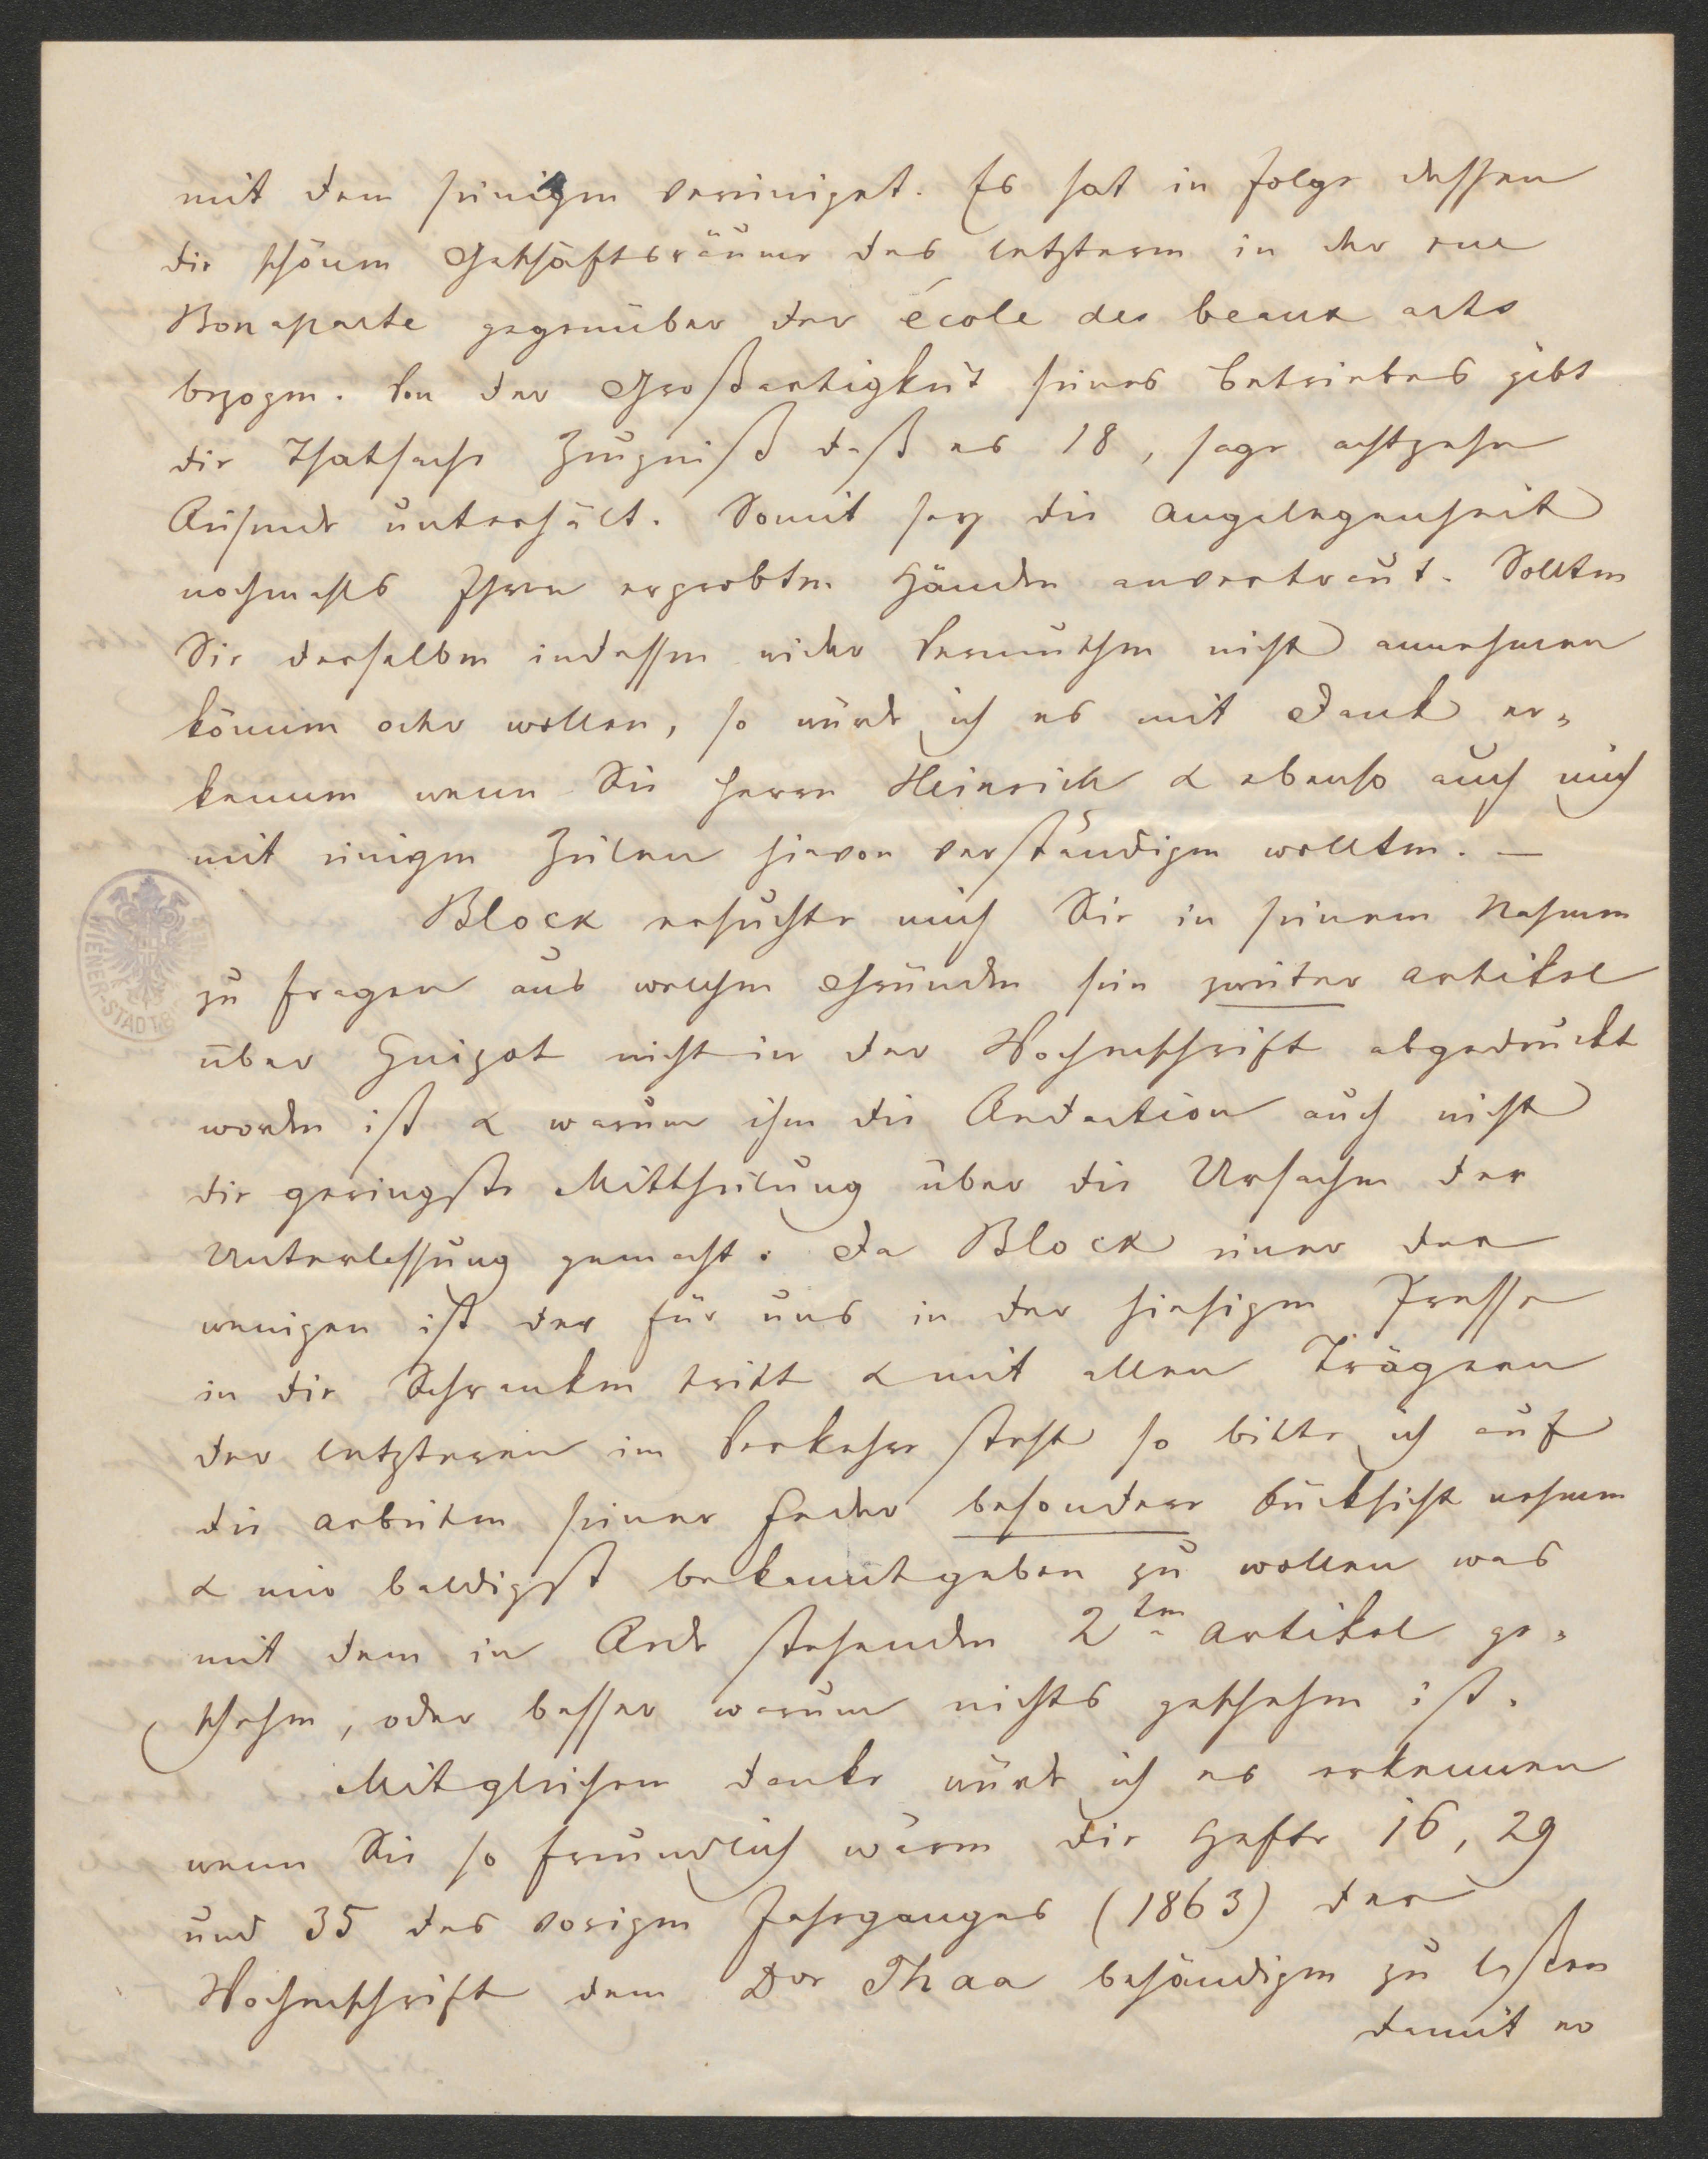 mit dem seinigen vereiniget. Es hat in Folge dessen
die schönen Geschäftsräume des letztern in der rue
Bonaparte gegenüber der école des beaux arts
bezogen. Von der Großartigkeit seines Betriebes gibt
die Thatsache Zeugniß daß es 18, sage achtzehn
Reisende unterhält. Somit sey die Angelegenheit
nochmals Ihren erprobten Händen anvertraut. Sollten
Sie derselben indessen wider Vermuthen nicht annehmen
können oder wollen, so würde ich es mit Dank er-
kennen wenn Sie Herrn Heinrich & ebenso auch mich
mit einigen Zeilen hievon verständigen wollten. —
Block ersuchte mich Sie in seinem Nahmen
zu fragen aus welchen Gründen sein zweiter Artikel
über Guizot nicht in der Wochenschrift abgedruckt
worden ist & warum ihm die Redaction auch nicht
die geringste Mittheilung über die Ursachen der
Unterlassung gemacht. Da Block einer der
wenigen ist der für uns in der hiesigen Presse
in die Schranken tritt & mit allen Trägern
der letzteren im Verkehre steht so bitte ich auf
die Arbeiten seiner Feder besondere Rücksicht nehmen
& mir baldigst bekanntgeben zu wollen was
mit dem in Rede stehenden 2ten Artikel ge-
schehen, oder besser warum nichts geschehen ist.
Mit gleichem Danke würde ich es erkennen
wenn Sie so freundlich wären die Hefte 16, 29
und 35 des vorigen Jahrganges (1863) der
Wochenschrift dem Dor Thaa behändigen zu laßen
damit er
WIENER-STADT-B